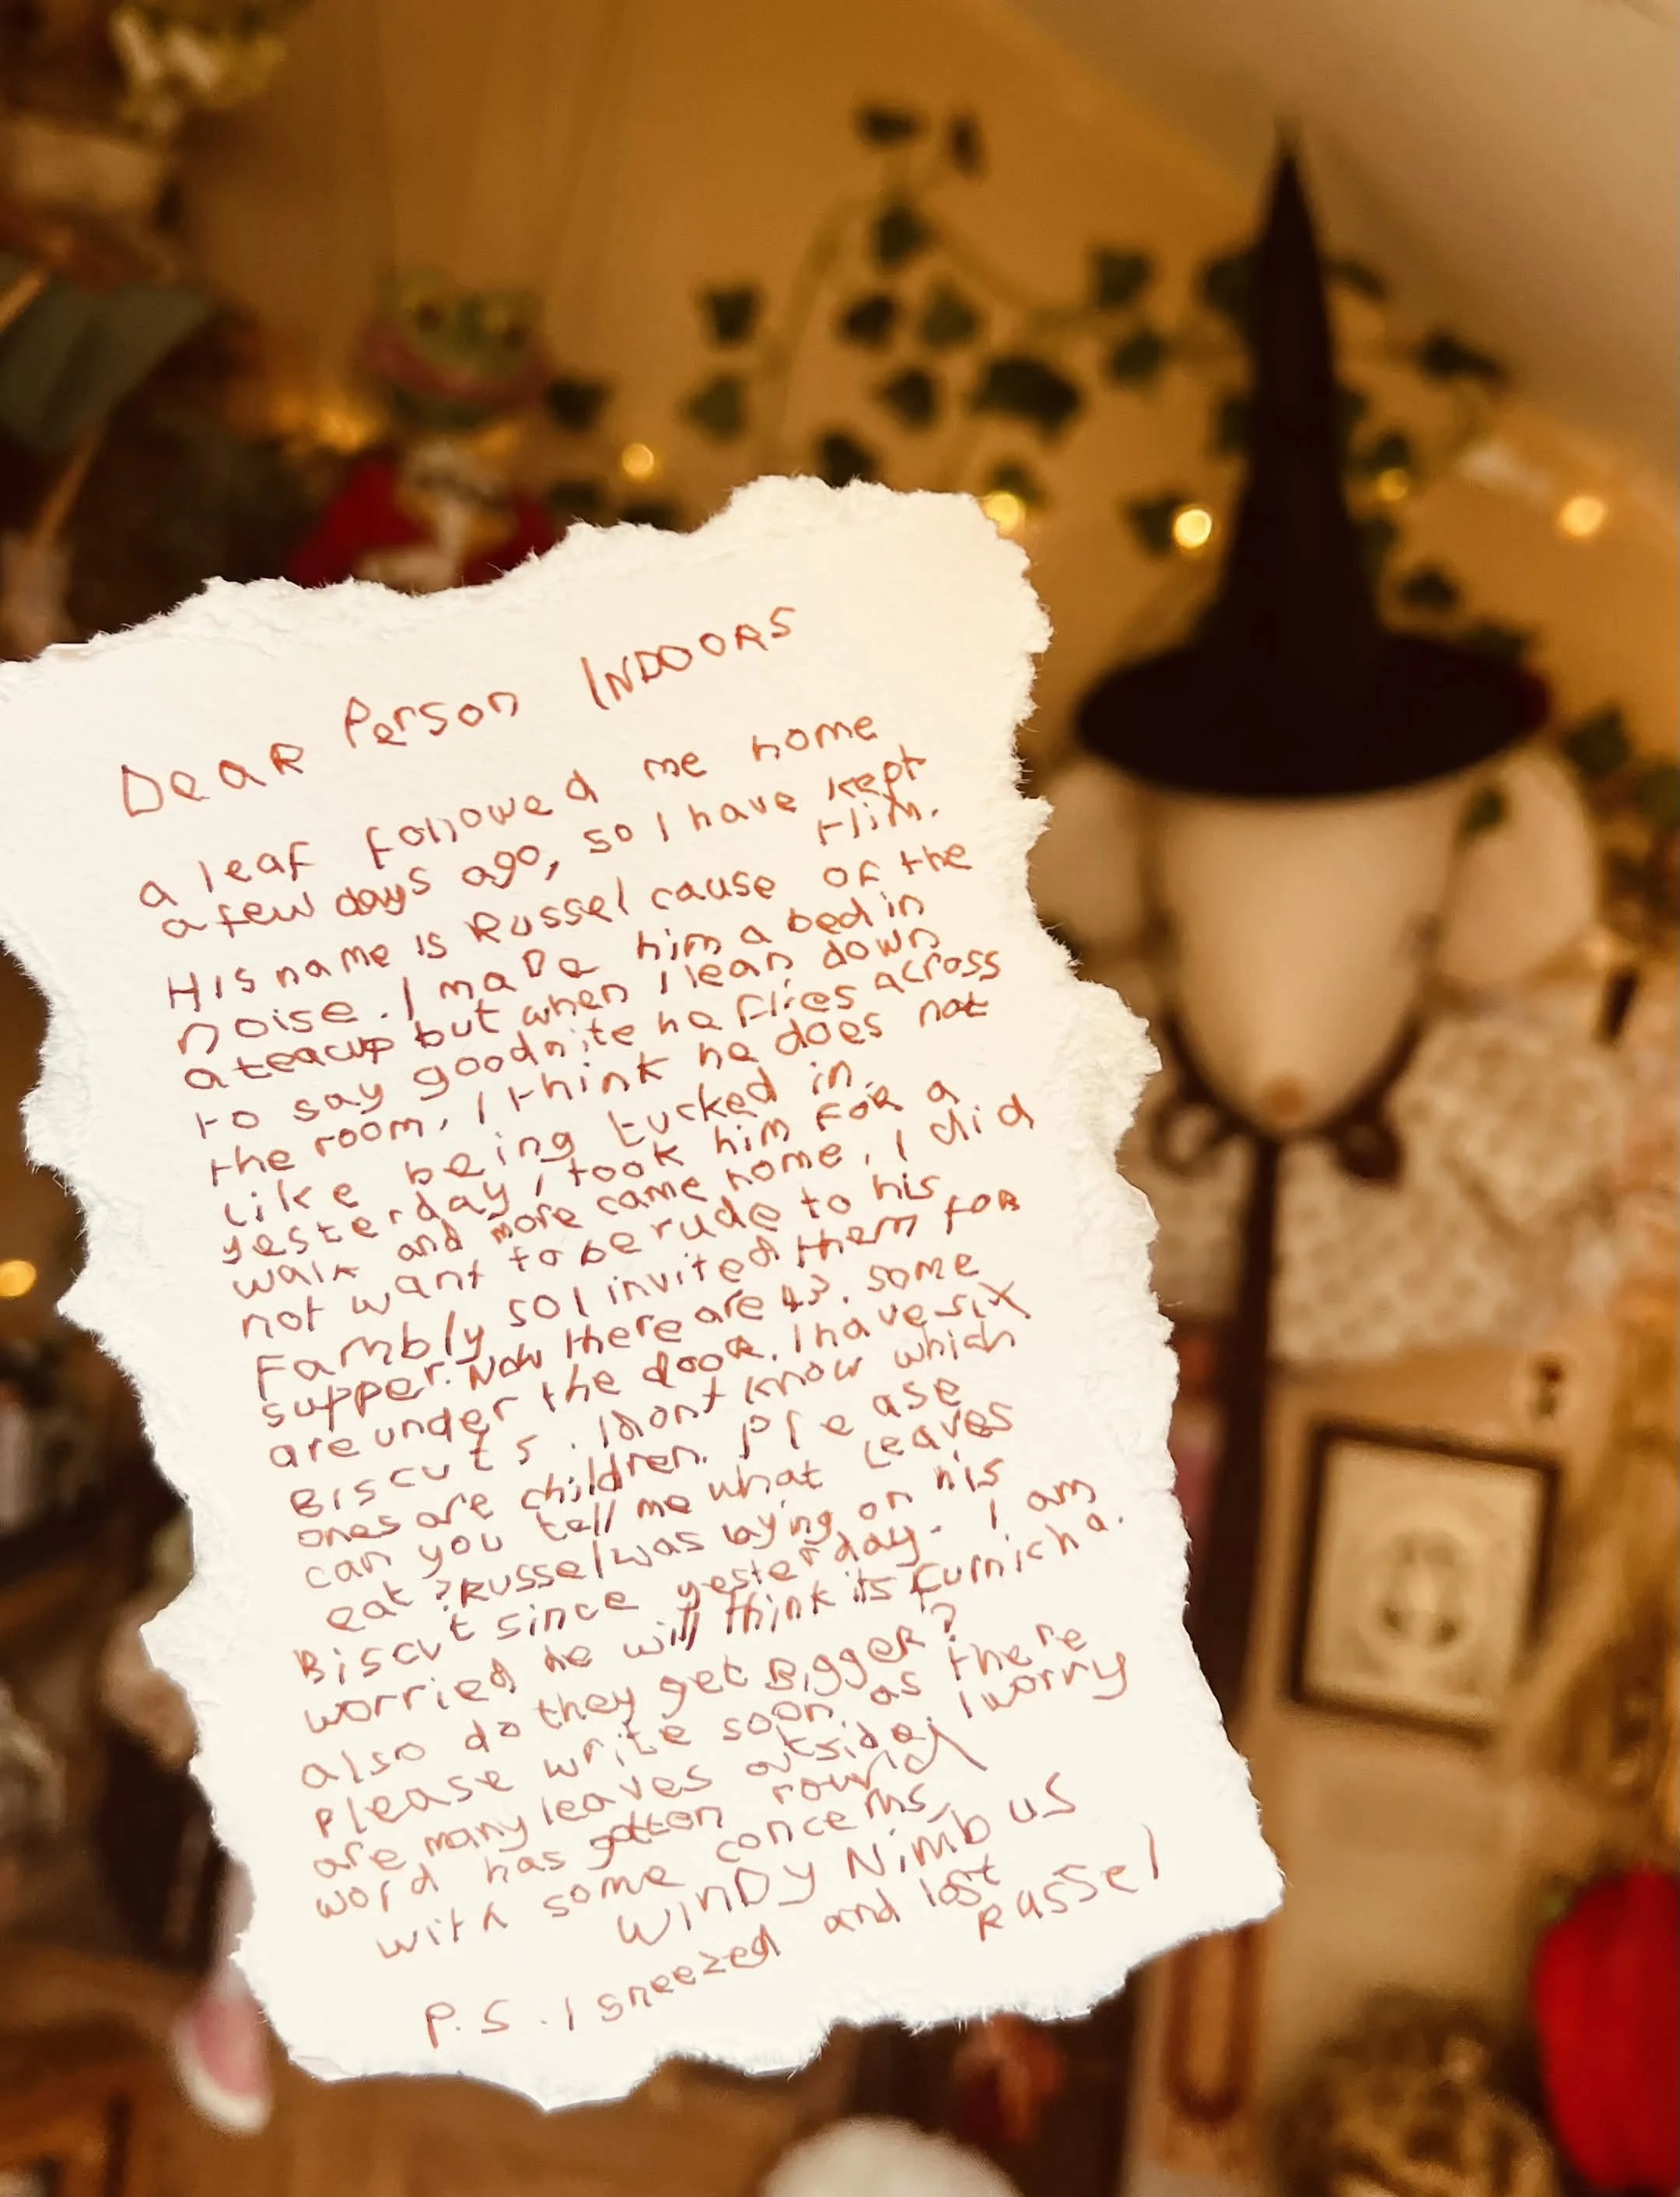 Dear Person INDOORS
a leaf followed me home
a few days ago, so I have kept
Him.
His name is Russel cause of the
noise. I made him a bed in
a teacup but when I lean down
to say goodnite he flies across
the room, I think he does not
like being tucked in.
yesterday I took him for a
walk and more came home, I did
not want to be rude to his
Fambly so I invited them for
supper. Now there are 43. some
are under the door. I have six
Biscuts. I dont know which
ones are children. Please
can you tell me what leaves
eat? Russel was laying on his
Biscut since yesterday. I am
worried he will think its furnicha.
also do they get Bigger?
Please write soon as there
are many leaves outside, I worry
word has gotten round
with some concerns,
WinDy Nimbus
P.S. I sneezed and lost
Russel